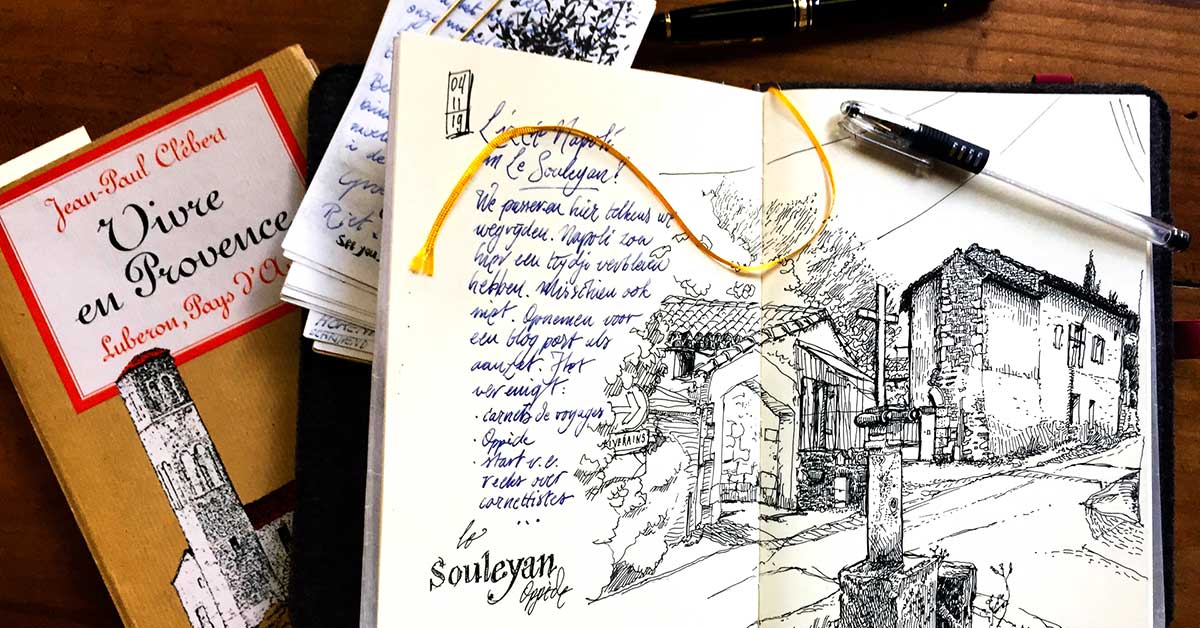 Jean-Paul Clébert
Vivre
en Provence
Luberon, Pays d'A
Riet
See you
04
11
19
Napoli
in Le Souleyan?
We passeren hier telkens we
wegrijden. Napoli zou
hier een tijdje verbleven
hebben. Misschien ook
niet. Opnemen voor
een blog post als
aanzet. Het
verenigt:
· carnets de voyages
· Oppède
· start v.e.
reeks over
carnettistes
...
le
Souleyan
Oppède
RIVERAINS